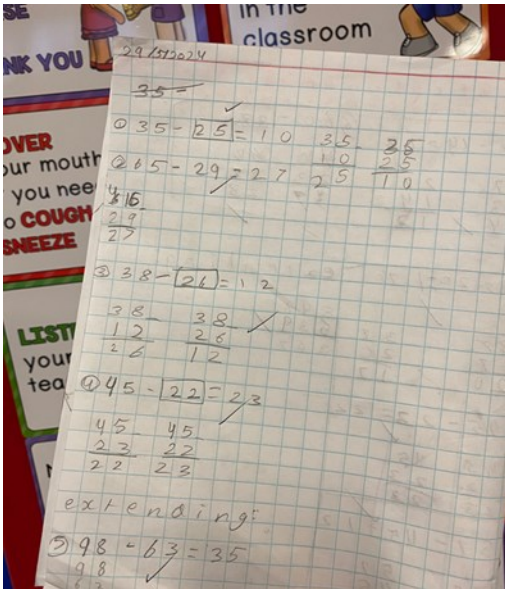 SE
NK YOU
IN THE
classroom
OVER
our mouth
you nee
o COUGH
SNEEZE
LIST
your
tea
29/5/2024
35 -
① 35 - 25 = 10
35 -
10
25
35
25
10
② 65 - 29 = 27
29
27
③ 38 - 26 = 12
38 -
12
26
38 -
26
12
④ 45 - 22 = 23
45 -
23
22
45 -
22
23
extending:
⑤ 98 - 63 = 35
98
63